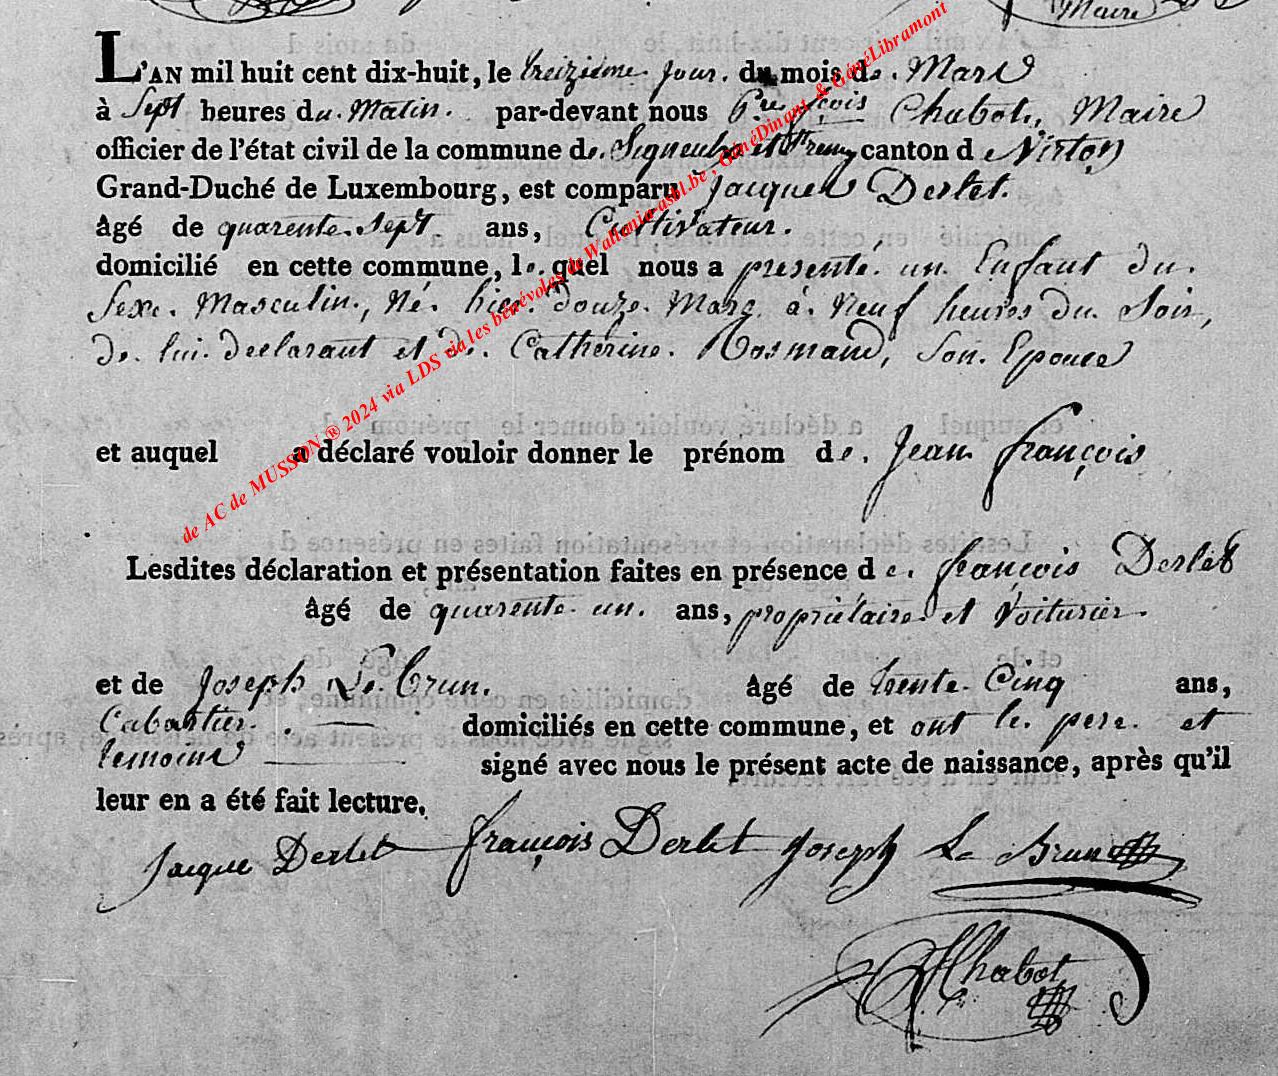 Maire
L'AN mil huit cent dix-huit, le treizieme jour. du mois de. Mars
à Sept heures du. Matin. par-devant nous Pre fçois Chabot, Maire
officier de l'état civil de la commune de. Signeulx et canton de Virton
Grand-Duché de Luxembourg, est comparu Jacques Derlet.
âgé de quarente. Sept. ans, Cultivateur.
domicilié en cette commune, le. quel nous a presenté. un Enfant du.
Sexe. Masculin., Né. hier. douze. Mars à. Neuf heures du Soir,
de. lui. declarant et de. Catherine. Rosmand, Son. Epouse
et auquel a déclaré vouloir donner le prénom de. Jean françois
Lesdites déclaration et présentation faites en présence de. françois Derlet
âgé de quarente. un. ans, propriétaire et Voiturier.
et de Joseph Le. brun. âgé de trente. Cinq ans,
Cabartier. domiciliés en cette commune, et ont le. pere. et
temoins signé avec nous le présent acte de naissance, après qu'il
leur en a été fait lecture.
Jacque Derlet françois Derlet Joseph Le Brun
Chabot
de AC de MUSSON ® 2024 via LDS via les bénévoles de Wallonia-asbl.be , GénéDinant & GénéLibramont